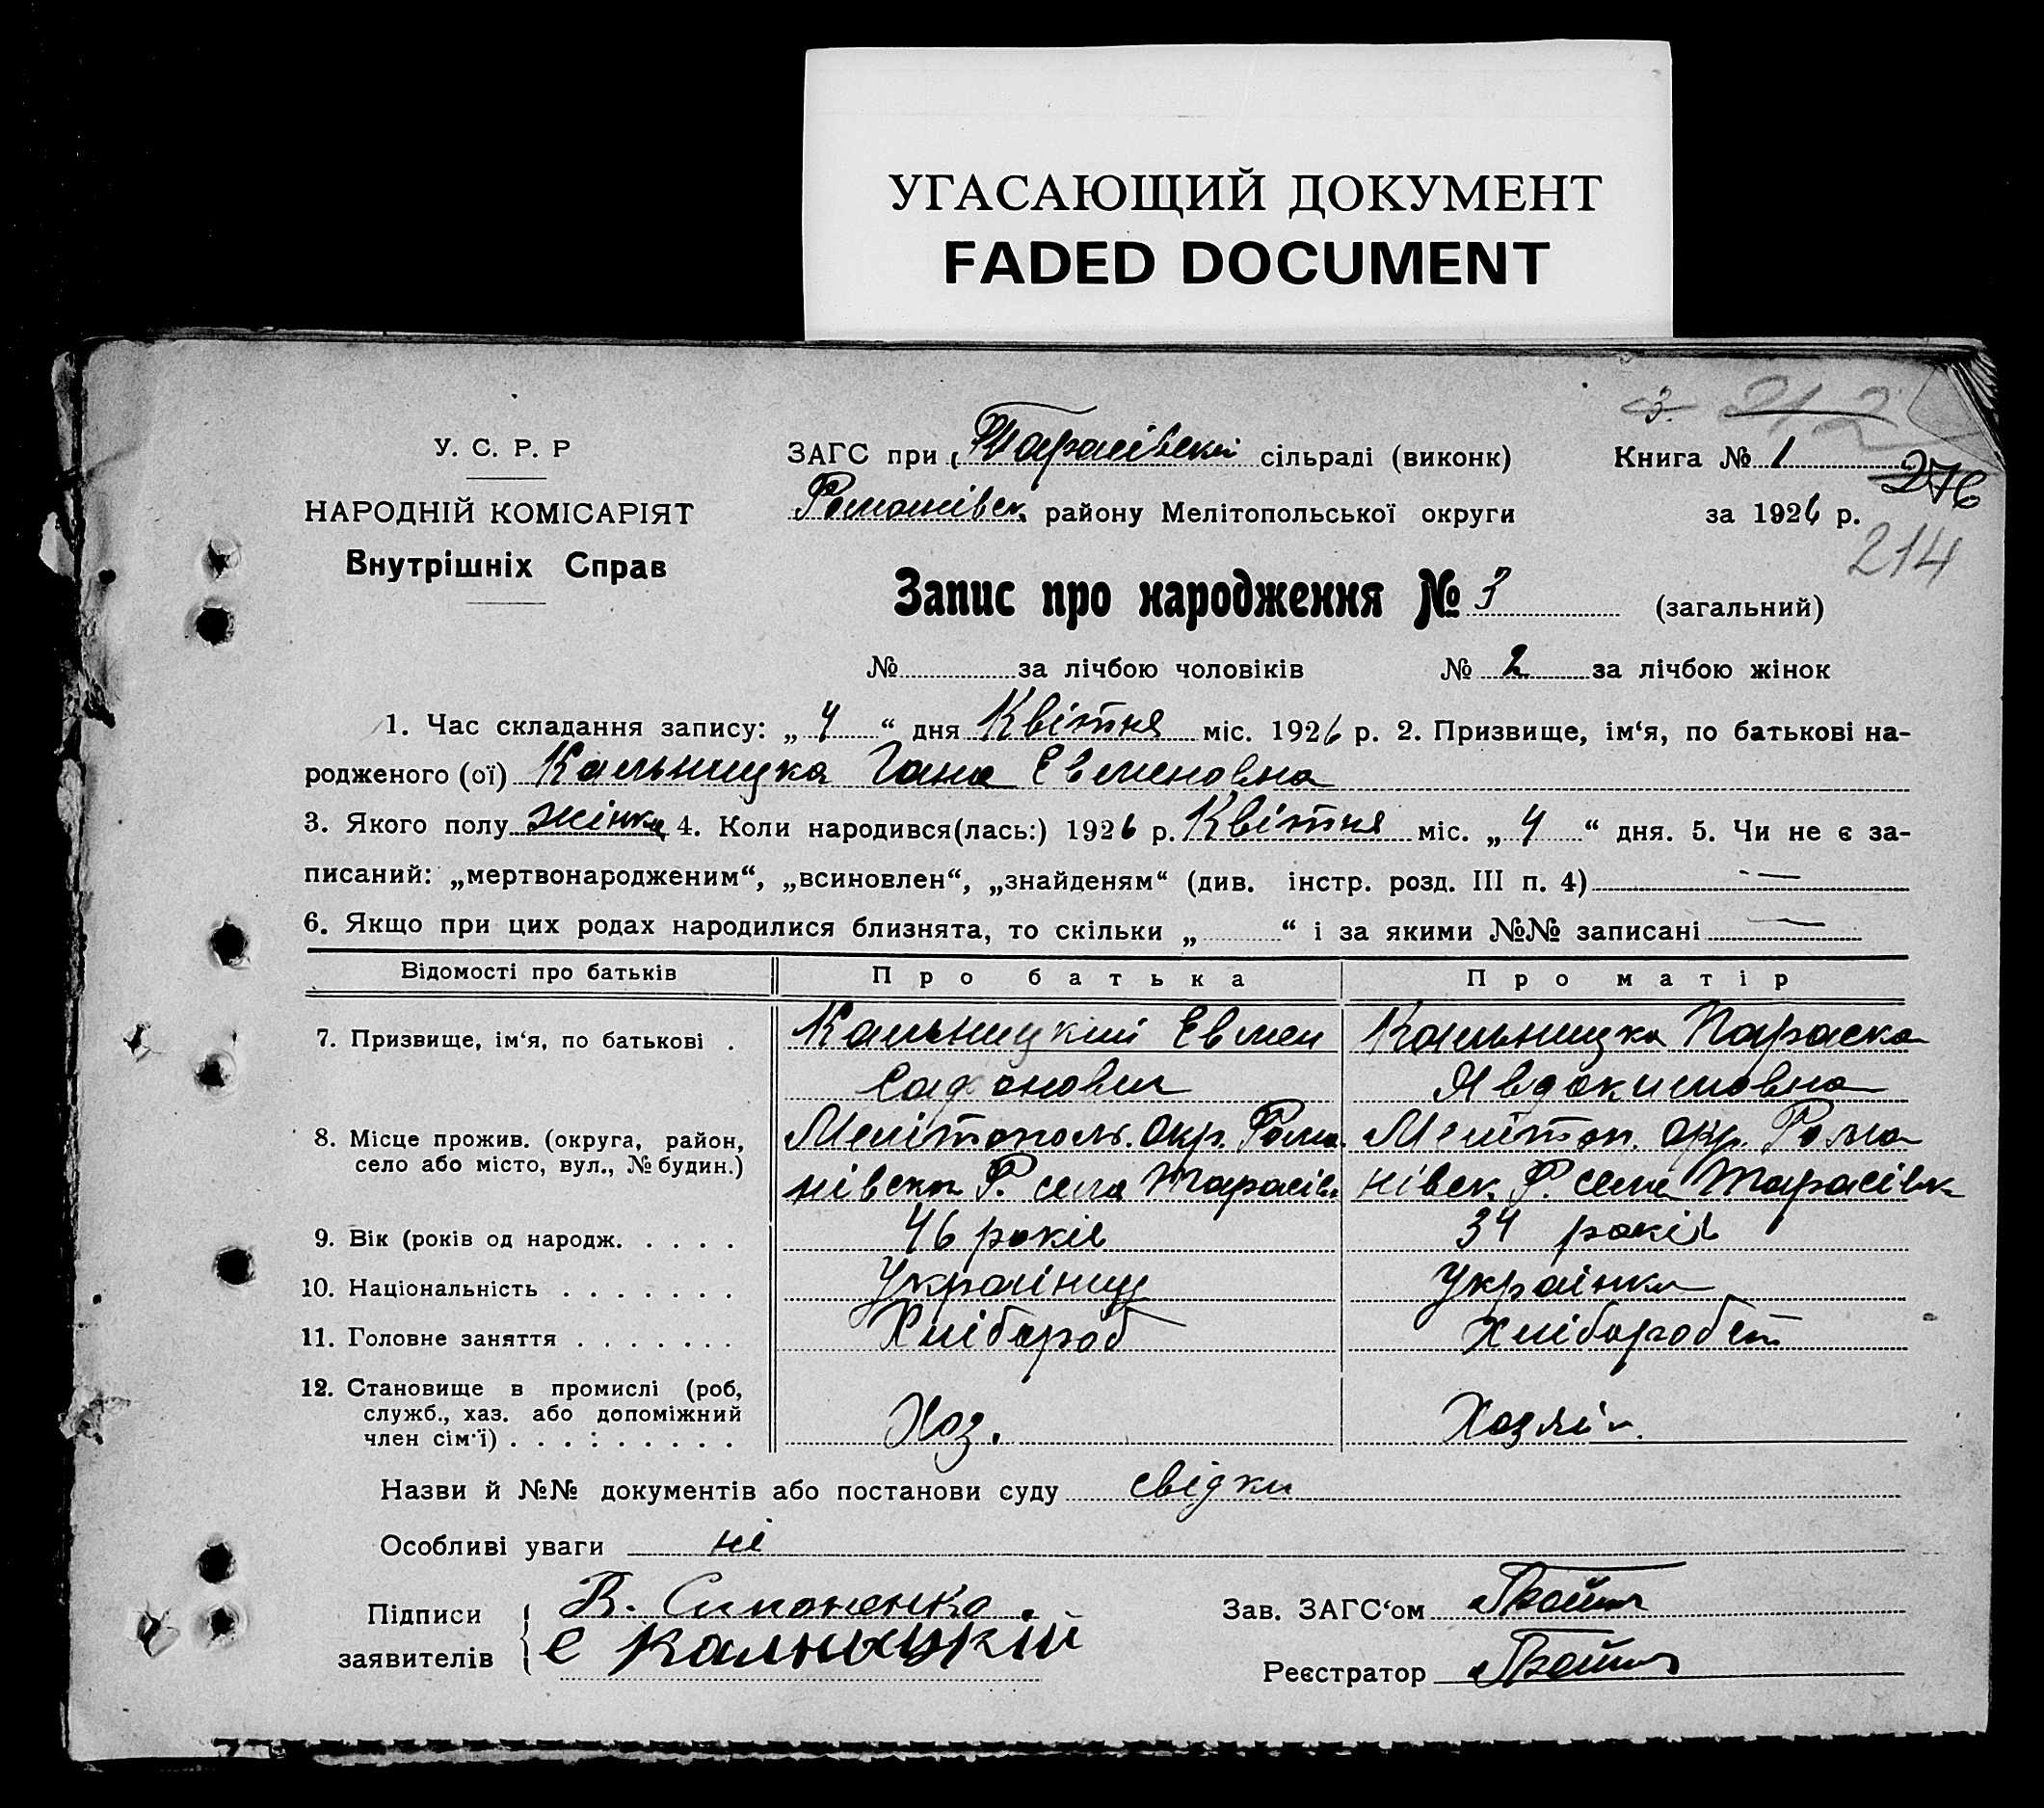 УГАСАЮЩИЙ ДОКУМЕНТ
FADED DOCUMENT
3. 212
У. С. Р. Р
ЗАГС при Тарасівскі сільраді (виконк) Книга № 1
276
НАРОДНІЙ КОМІСАРІЯТ
Романівск. району Мелітопольської округи за 1926 р.
Внутрішніх Справ
214
Запис про народження № 3 (загальний)
№ за лічбою чоловіків № 2 за лічбою жінок
1. Час складання запису: „ 4 “ дня Квітня міс. 1926 р. 2. Призвище, ім‘я, по батькові на-
родженого (ої) Кальницка Гана Евменовна
3. Якого полу жінка 4. Коли народився(лась:) 1926 р. Квітня міс. „ 4 “ дня. 5. Чи не є за-
писаний: „мертвонародженим“, „всиновлен“, „знайденям“ (див. інстр. розд. III п. 4) —
6. Якщо при цих родах народилися близнята, то скільки „ “ і за якими №№ записані —
Відомості про батьків Про батька Про матір
7. Призвище, ім‘я, по батькові . Кальницкий Евмен Кальницка Параска
Сафонович Явдокимовна
8. Місце прожив. (округа, район, Мелітополь. Окр. Рома Мелітоп. Окр. Рома
село або місто, вул., № будин.) нівск Р. села Тарасівк нівск. Р. села Тарасівк
9. Вік (років од народж. . . . . 46 років 34 років
10. Національність . . . . . . . Украінец Украінка
11. Головне заняття . . . . . . . Хлібороб Хліборобст
12. Становище в промислі (роб,
служб., хаз. або допоміжний Хоз. Хозяін.
член сім‘ї) . . . . . . . . .
Назви й №№ документів або постанови суду свідки
Особливі уваги ні
Підписи В. Симоненко. Зав. ЗАГС‘ом
заявителів Є Калницкій Реєстратор